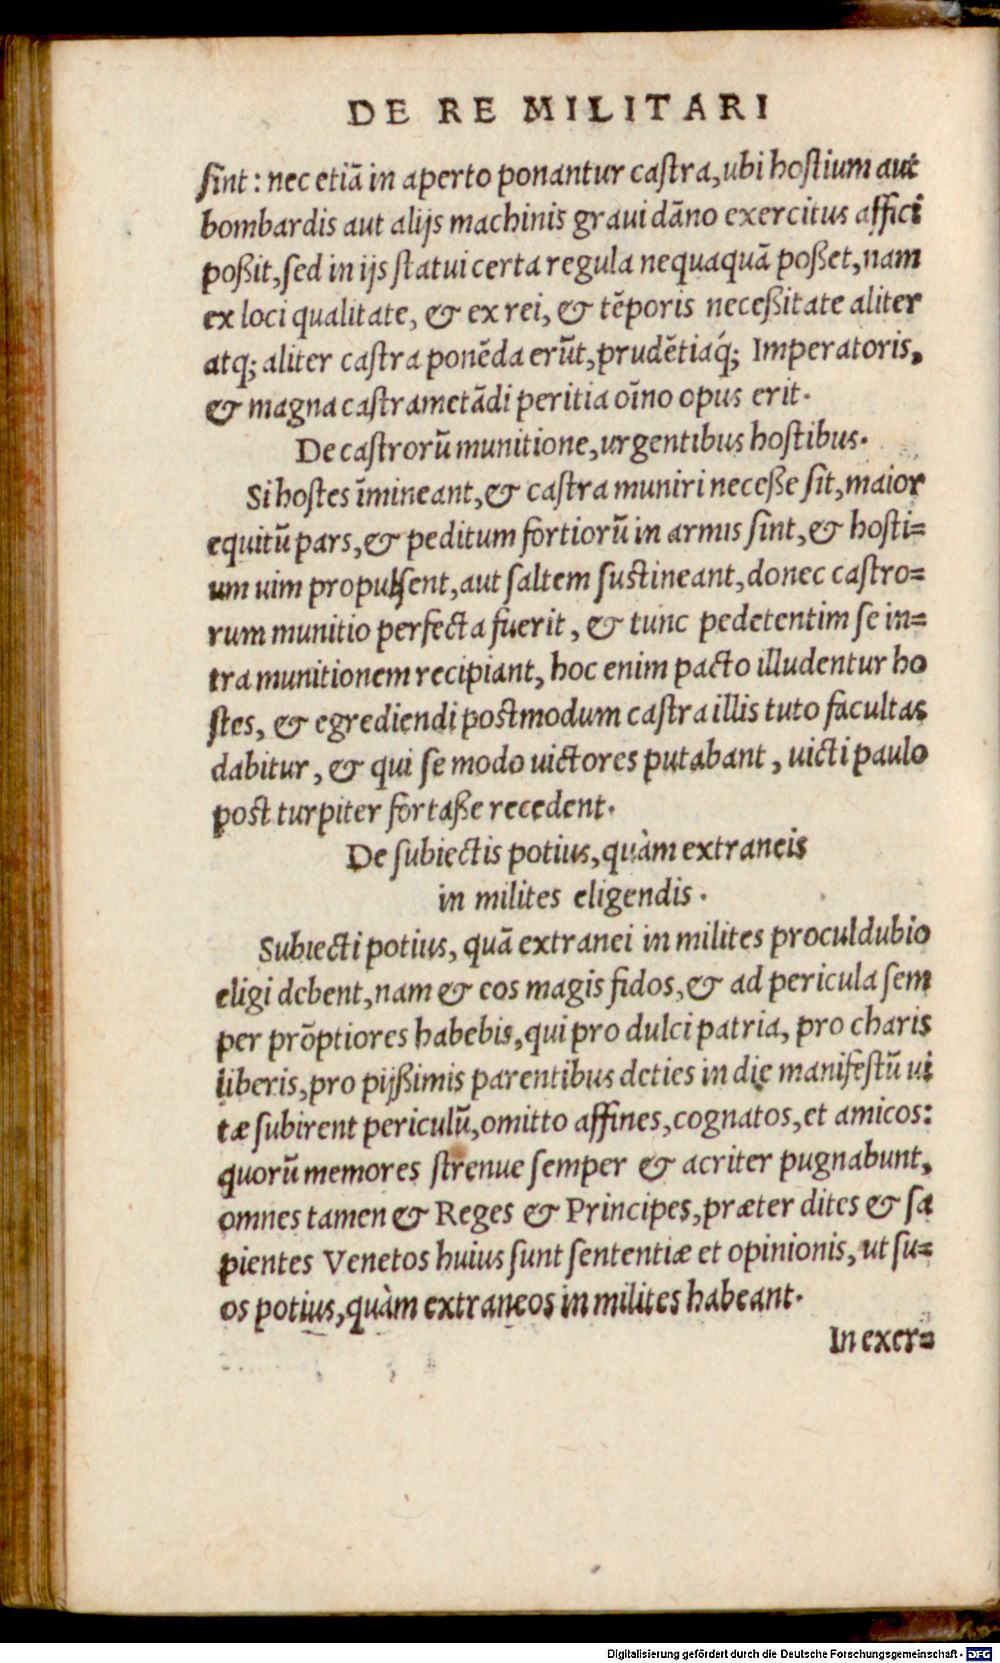 DE RE MILITARI
ſint: nec etiã in aperto ponantur caſtra, ubi hoſtium aut
bombardis aut alijs machinis graui dãno exercitus affici
poßit, ſed in ijs ſtatui certa regula nequaquã poßet, nam
ex loci qualitate, & ex rei, & tẽporis neceßitate aliter
atq; aliter caſtra ponẽda erũt, prudẽtiaq́; Imperatoris,
& magna caſtrametãdi peritia oĩno opus erit.
De caſtrorũ munitione, urgentibus hoſtibus.
Si hoſtes ĩmineant, & caſtra muniri neceße ſit, maior
equitũ pars, & peditum fortiorũ in armis ſint, & hoſti=
um uim propulſent, aut ſaltem ſuſtineant, donec caſtro=
rum munitio perfecta fuerit, & tunc pedetentim ſe in=
tra munitionem recipiant, hoc enim pacto illudentur ho
ſtes, & egrediendi poſtmodum caſtra illis tuto facultas
dabitur, & qui ſe modo uictores putabant, uicti paulo
poſt turpiter fortaße recedent.
De ſubiectis potius, quàm extraneis
in milites eligendis.
Subiecti potius, quã extranei in milites proculdubio
eligi debent, nam & eos magis fidos, & ad pericula ſem
per prõptiores habebis, qui pro dulci patria, pro charis
liberis, pro pijßimis parentibus deties in die manifeſtũ ui
tæ ſubirent periculũ, omitto affines, cognatos, et amicos:
quorũ memores ſtrenue ſemper & acriter pugnabunt,
omnes tamen & Reges & Principes, præter dites & ſa
pientes Venetos huius ſunt ſententiæ et opinionis, ut ſu=
os potius, quàm extraneos in milites habeant.
In exer=
Digitalisierung gefördert durch die Deutsche Forschungsgemeinschaft - DFG